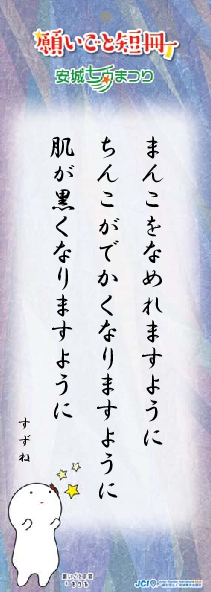 願いごと短冊
安城七夕まつり
まんこをなめれますように
ちんこがでかくなりますように
肌が黒くなりますように
すずね
願いごと短冊
JCI